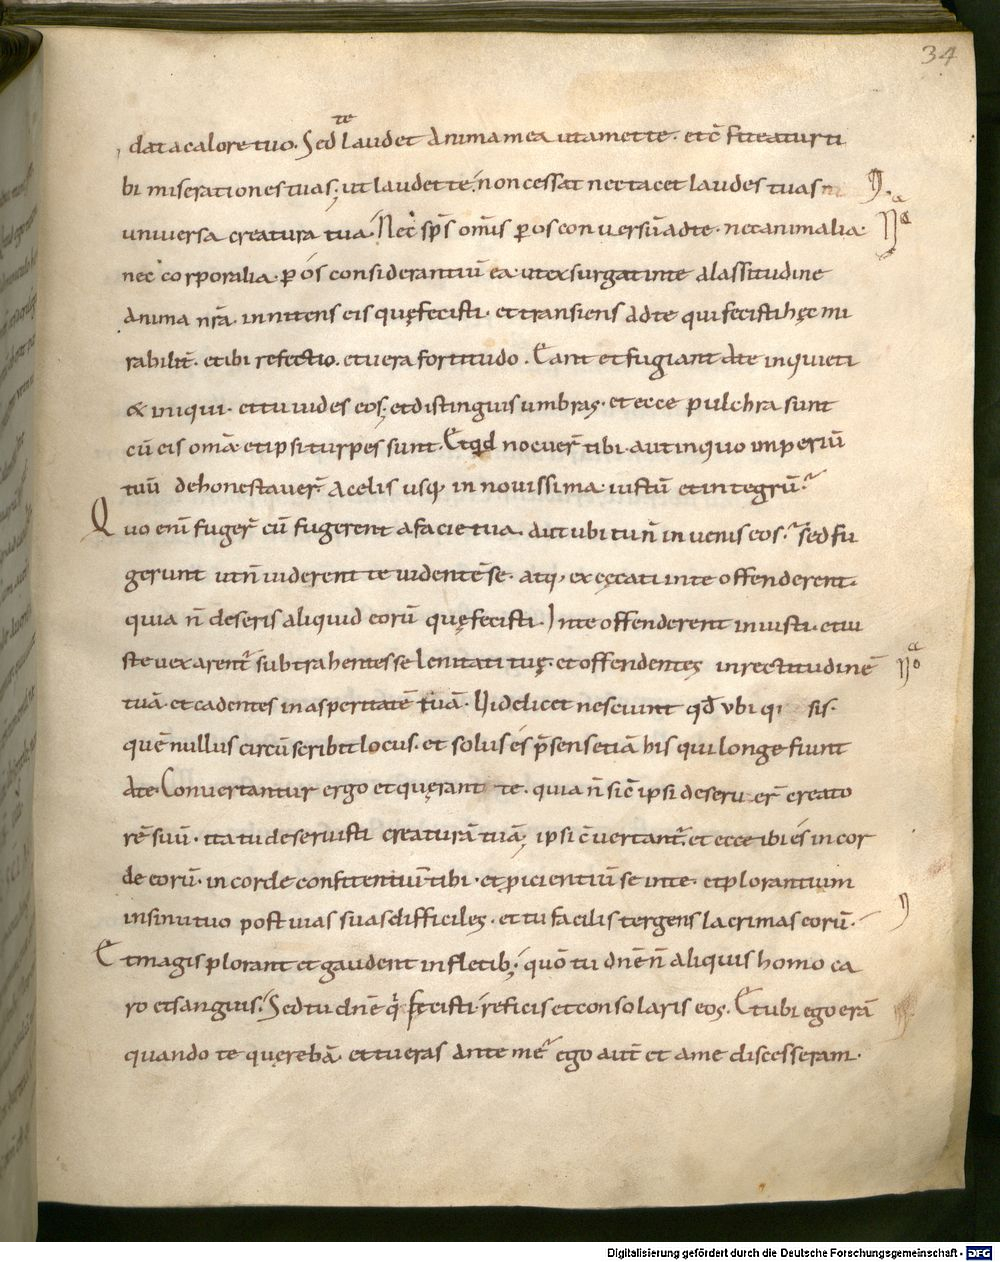 34
dat a calore tuo. Sed te laudet anima mea ut amet te. et c̄fiteatur ti
bi miserationes tuas; ut laudet te. non cessat nec tacet laudes tuas
universa creatura tua. Nec sp̄s om̄is ꝑ os conversū ad te. nec animalia
nec corporalia. ꝑ os considerantiū ea. ut exsurgat in te a lassitudine
anima nr̄a. innitens eis quę fecisti. et transiens ad te qui fecisti hęc mi
rabilit̄. et ibi refectio. et vera fortitudo. Eant et fugiant a te inquieti
& iniqui. et tu vides eos; et distinguis umbras; et ecce pulchra sunt
cū eis om̄a et ipsi turpes sunt. Et qd nocuer̄ tibi. aut in quo imperiū
tuū dehonestaver̄ a celis usq; in novissima iustū et integrū.
Quo enī fuger̄ cū fugerent a facie tua. aut ubi tu n̄ invenis eos. sed fu
gerunt ut n̄ viderent te videntē se. atq; excęcati in te offenderent.
quia n̄ deseris aliquid eorū quę fecisti. In te offenderent iniusti. et iu
ste vexarent̄ subtrahentes se lenitati tuę. et offendentes in rectitudinē
tuā. et cadentes in asperitatē tuā. Videlicet nesciunt qd̄ ubiq; sis.
quē nullus circūscribit locus. et solus es p̄sens etiā his qui longe fiunt
a te. Convertantur ergo et quęrant te. quia n̄ sic̄ ipsi deseruer̄ creato
rē suū. ita tu deseruisti creaturā tuā; ipsi c̄vertant̄. et ecce ibi es in cor
de eorū. in corde confitentiū tibi. et ꝓicientiū se in te. et plorantium
in sinu tuo post vias suas difficiles. et tu facilis tergens lacrimas eorū.
Et magis plorant et gaudent in fletib; quō tu dn̄e n̄ aliquis homo ca
ro et sanguis. Sed tu dn̄e q̄ fecisti. reficis et consolaris eos. Et ubi ego erā
quando te quęrebā. et tu eras ante me. ego aut̄ et a me discesseram.
Digitalisierung gefördert durch die Deutsche Forschungsgemeinschaft - DFG